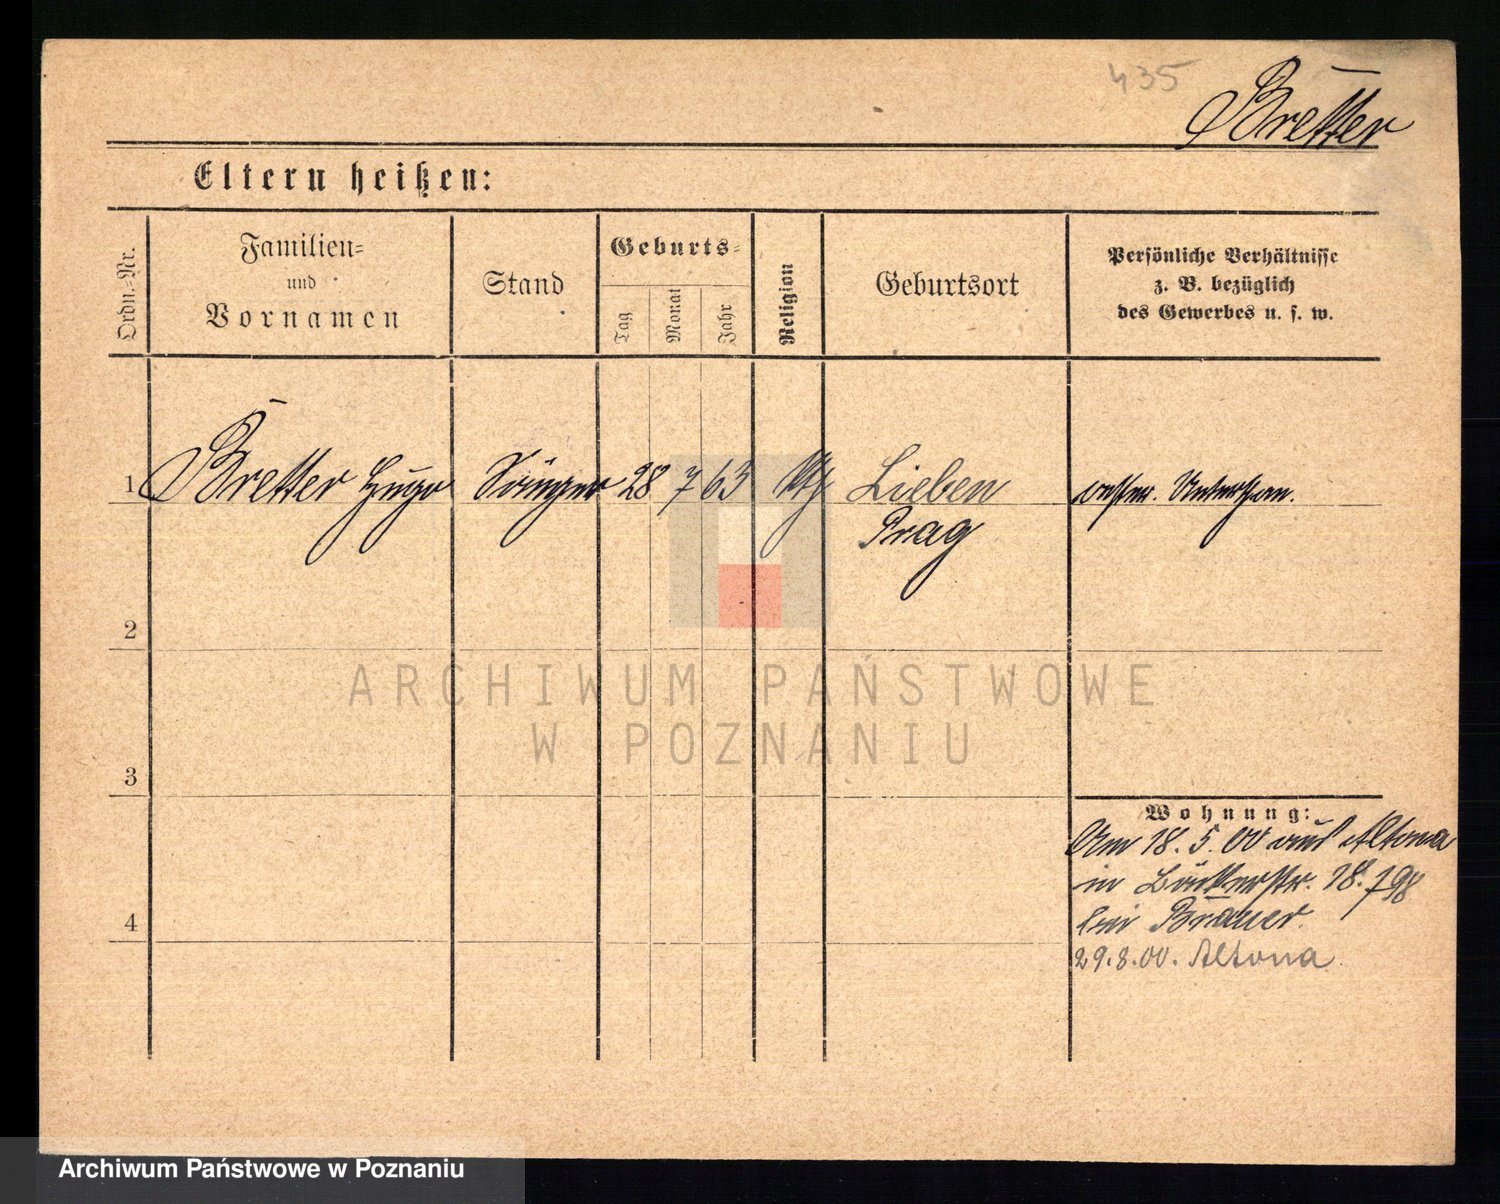 435
Bretter
Eltern heißen:
Ordn.-Nr.
Familien-
und
Vornamen
Stand
Geburts-
Tag
Monat
Jahr
Religion
Geburtsort
Persönliche Verhältnisse
z. B. bezüglich
des Gewerbes u. s. w.
1 Bretter Hugo Sänger 28 7 63 Lieben
Prag
2
ARCHIWUM PAŃSTWOWE
W POZNANIU
3
Wohnung:
Am 18. 5. 00 aus Altona
in 18.
4
bei Brauer.
29. 8. 00. Altona
Archiwum Państwowe w Poznaniu